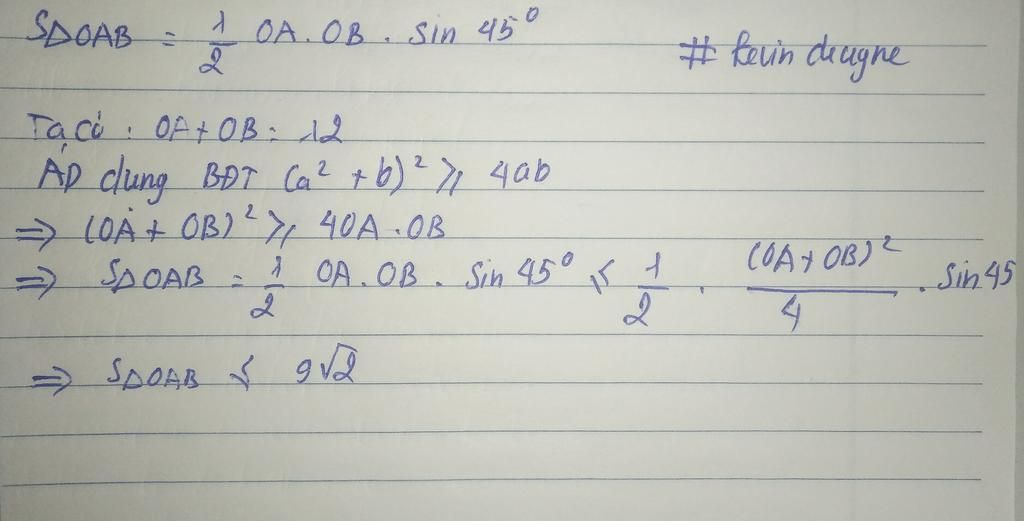 SΔOAB = 1/2 OA . OB . sin 45°
# Kevin dengne
Ta có : OA + OB = 12
ÁD dụng BĐT (a² + b)² ≥ 4ab
⇒ (OA + OB)² ≥ 4OA . OB
⇒ SΔOAB = 1/2 OA . OB . sin 45° ≤ 1/2 . (OA + OB)²/4 . sin 45
⇒ SΔOAB ≤ 9√2